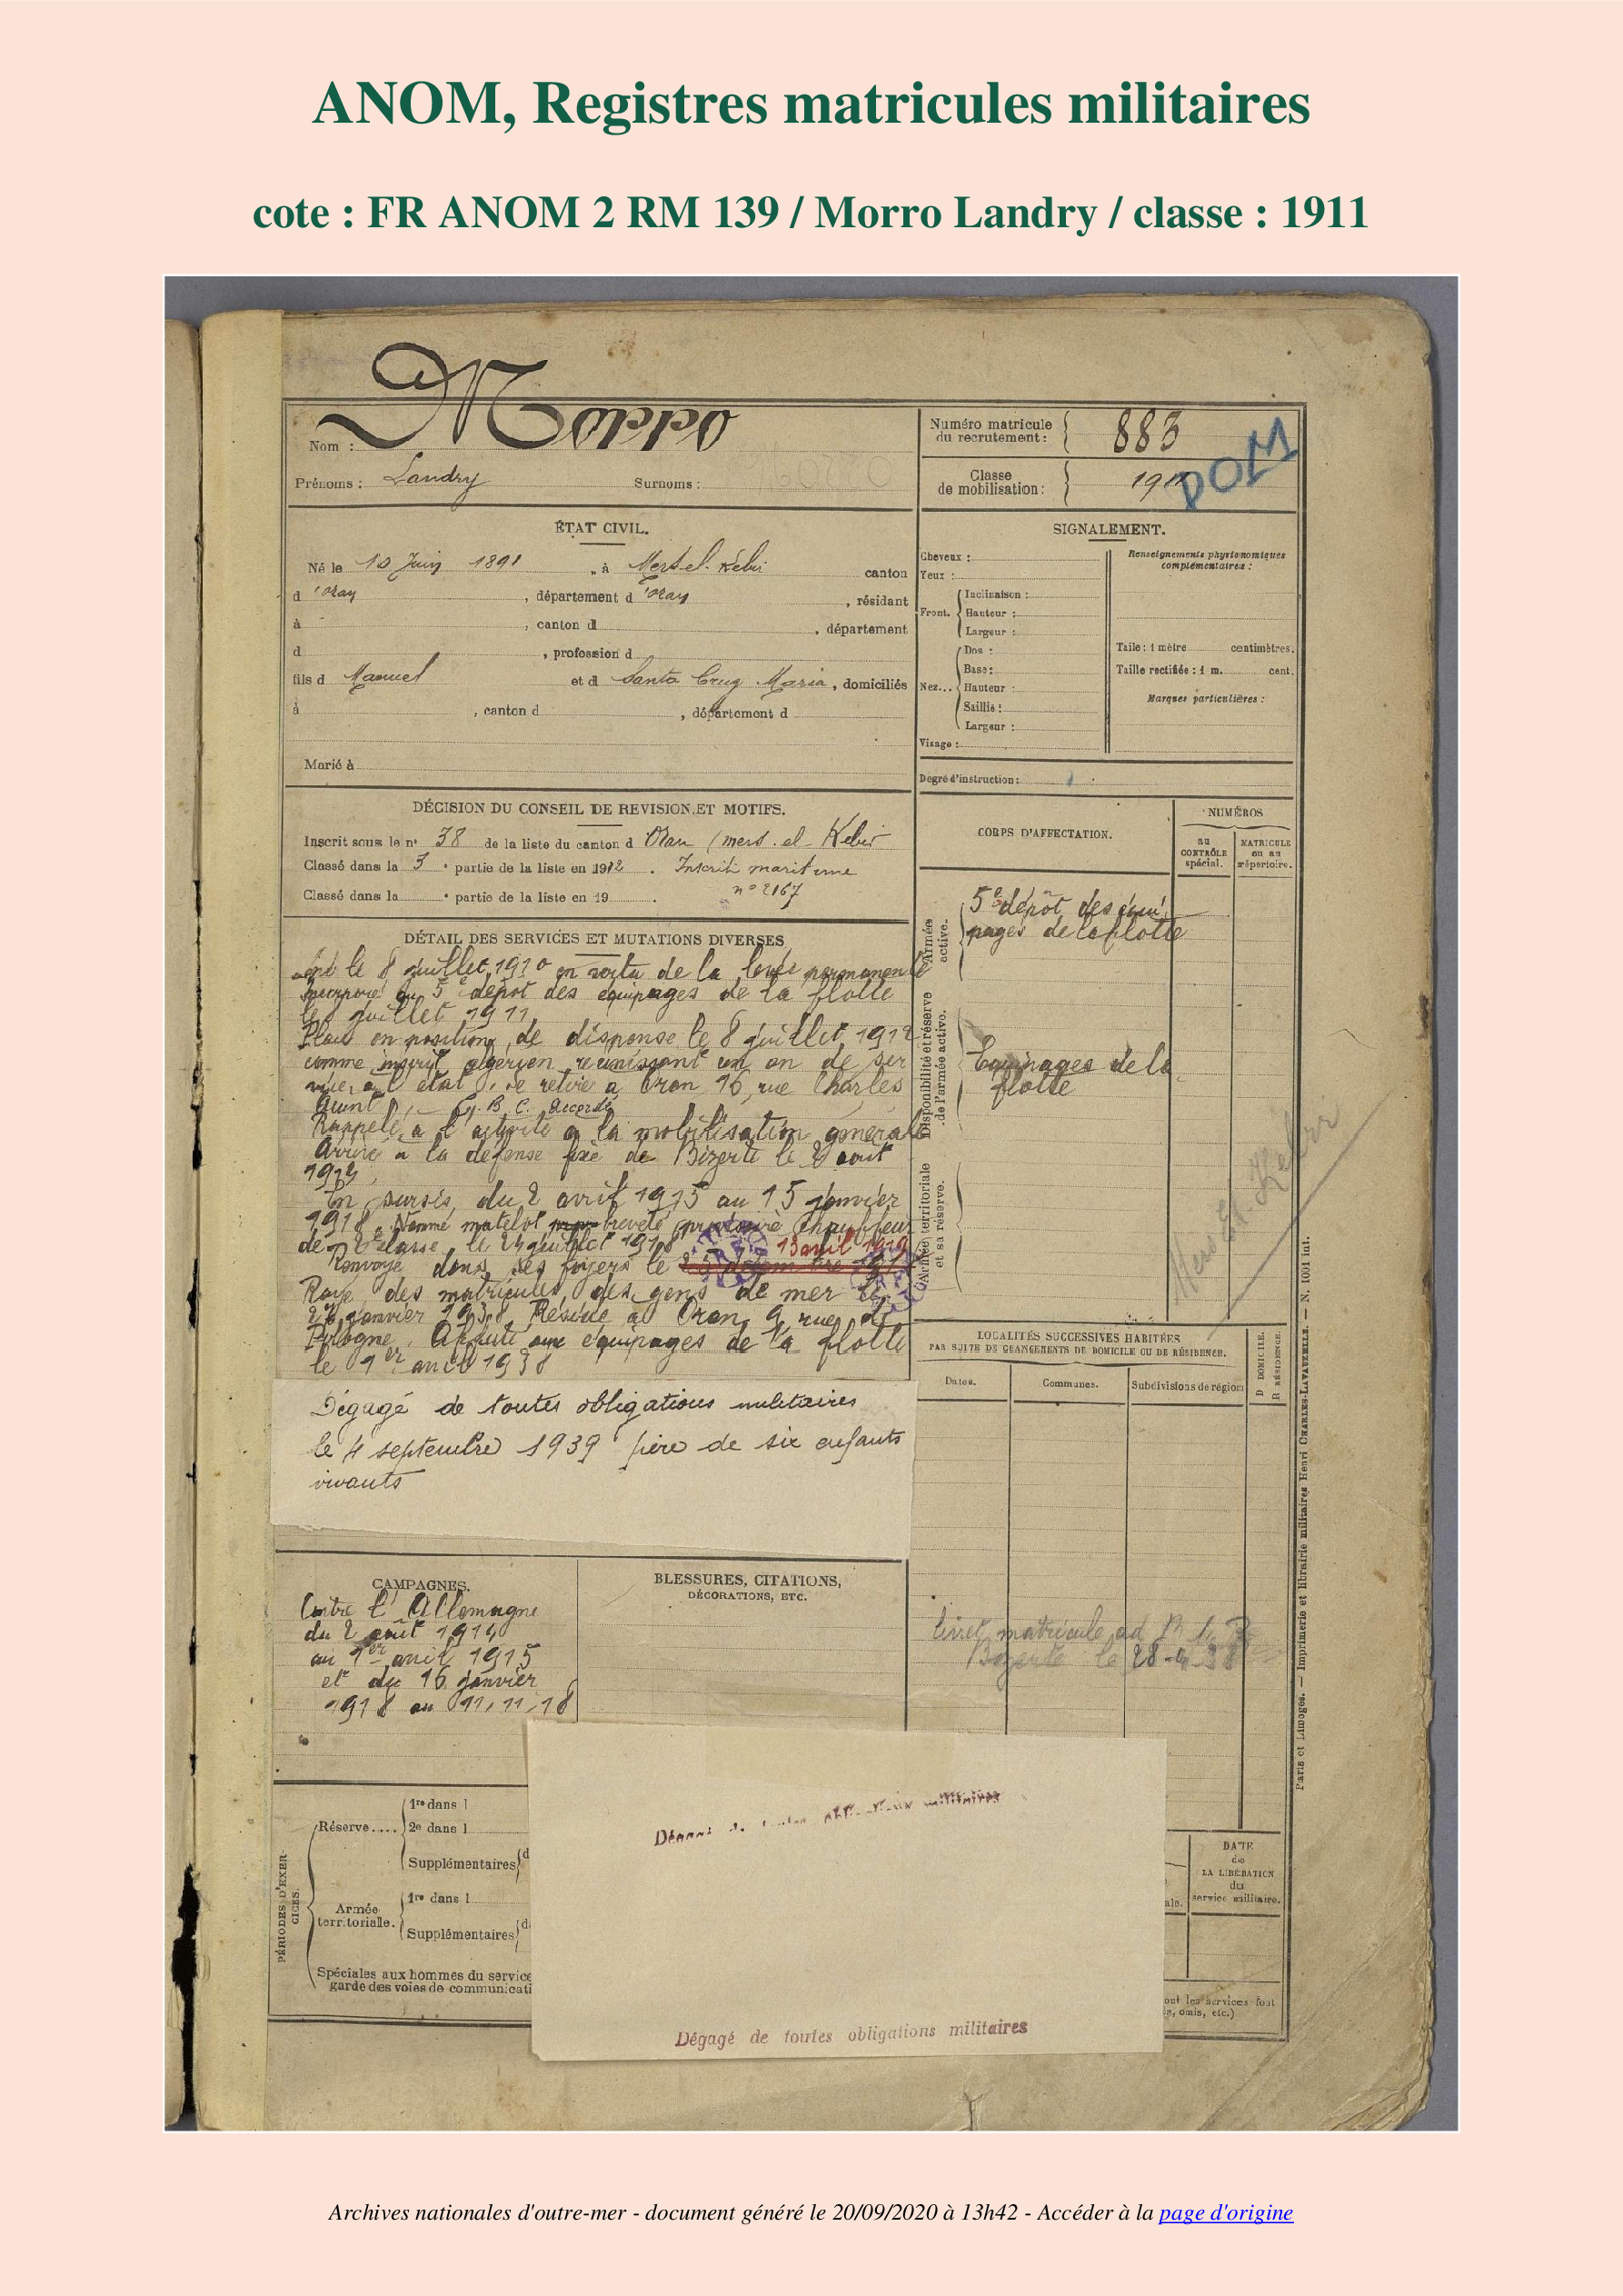 ANOM, Registres matricules militaires
cote : FR ANOM 2 RM 139 / Morro Landry / classe : 1911
Nom : Morro
Prénoms : Landry Surnoms :
Numéro matricule du recrutement : 883
Classe de mobilisation : 1911
DOM
ÉTAT CIVIL.
Né le 10 Juin 1891, à Mers el Kébir canton
d'Oran, département d'Oran, résidant
à , canton d , département
d , profession d
fils d Manuel et d Santa Cruz Maria, domiciliés
à , canton d , département d
Marié à
SIGNALEMENT.
Cheveux :
Yeux :
Front. Inclinaison :
Hauteur :
Largeur :
Nez... Dos :
Base :
Hauteur :
Saillie :
Largeur :
Visage :
Renseignements physionomiques complémentaires :
Taille : 1 mètre centimètres.
Taille rectifiée : 1 m. cent.
Marques particulières :
Degré d'instruction :
DÉCISION DU CONSEIL DE REVISION ET MOTIFS.
Inscrit sous le n° 38 de la liste du canton d Oran (mers-el-Kebir
Classé dans la 3e partie de la liste en 1912. Inscrit maritime
n° 2167
Classé dans la e partie de la liste en 19 .
CORPS D'AFFECTATION.
NUMÉROS
au CONTRÔLE spécial.
MATRICULE ou au répertoire.
Armée active.
5e dépôt des équi
pages de la flotte
Disponibilité et réserve de l'armée active.
Equipages de la
flotte
Armée territoriale et sa réserve.
Mers El-Kebir
DÉTAIL DES SERVICES ET MUTATIONS DIVERSES
le 8 juillet 1910 en vertu de la levée permanente
Incorporé au 5e dépôt des équipages de la flotte
le 8 juillet 1911
Placé en position de dispense le 8 juillet 1912
comme inscrit algérien réunissant un an de ser
vice à l'état, se retire à Oran 16, rue Charles
Quint, C. B. C. accordé
Rappelé à l'activité à la mobilisation générale
Arrivé à la défense fixe de Bizerte le 2 août
1914
En sursis du 2 avril 1915 au 15 janvier
1918. Nommé matelot breveté provisoire chauffeur
de 2e classe le 24 juillet 1918
Renvoyé dans ses foyers le 13 avril 1919
Rayé des matricules des gens de mer le
janvier 1938. Réside à Oran 9 rue de
Pologne. Affecté aux équipages de la flotte
le 1er avril 1938
Dégagé de toutes obligations militaires
le 4 septembre 1939 père de six enfants
vivants
LOCALITÉS SUCCESSIVES HABITÉES
PAR SUITE DE CHANGEMENTS DE DOMICILE OU DE RÉSIDENCE.
Dates. Communes. Subdivisions de région D DOMICILE. R RÉSIDENCE.
livret matricule
Bizerte le 28-4-38
CAMPAGNES.
Contre l'Allemagne
du 2 août 1914
au 1er avril 1915
et du 16 janvier
1918 au 11.11.18
BLESSURES, CITATIONS,
DÉCORATIONS, ETC.
PÉRIODES D'EXERCICES.
Réserve.... 1re dans l
2e dans l
Supplémentaires
Armée territoriale. 1re dans l
Supplémentaires
Spéciales aux hommes du service
garde des voies de communicati
Dégagé de toutes obligations militaires
Dégagé de toutes obligations militaires
DATE
de
LA LIBÉRATION
du
service militaire.
ale.
ont les services font
omis, etc.)
Paris et Limoges. — Imprimerie et librairie militaires Henri CHARLES-LAVAUZELLE. — N. 1001 int.
Archives nationales d'outre-mer - document généré le 20/09/2020 à 13h42 - Accéder à la page d'origine